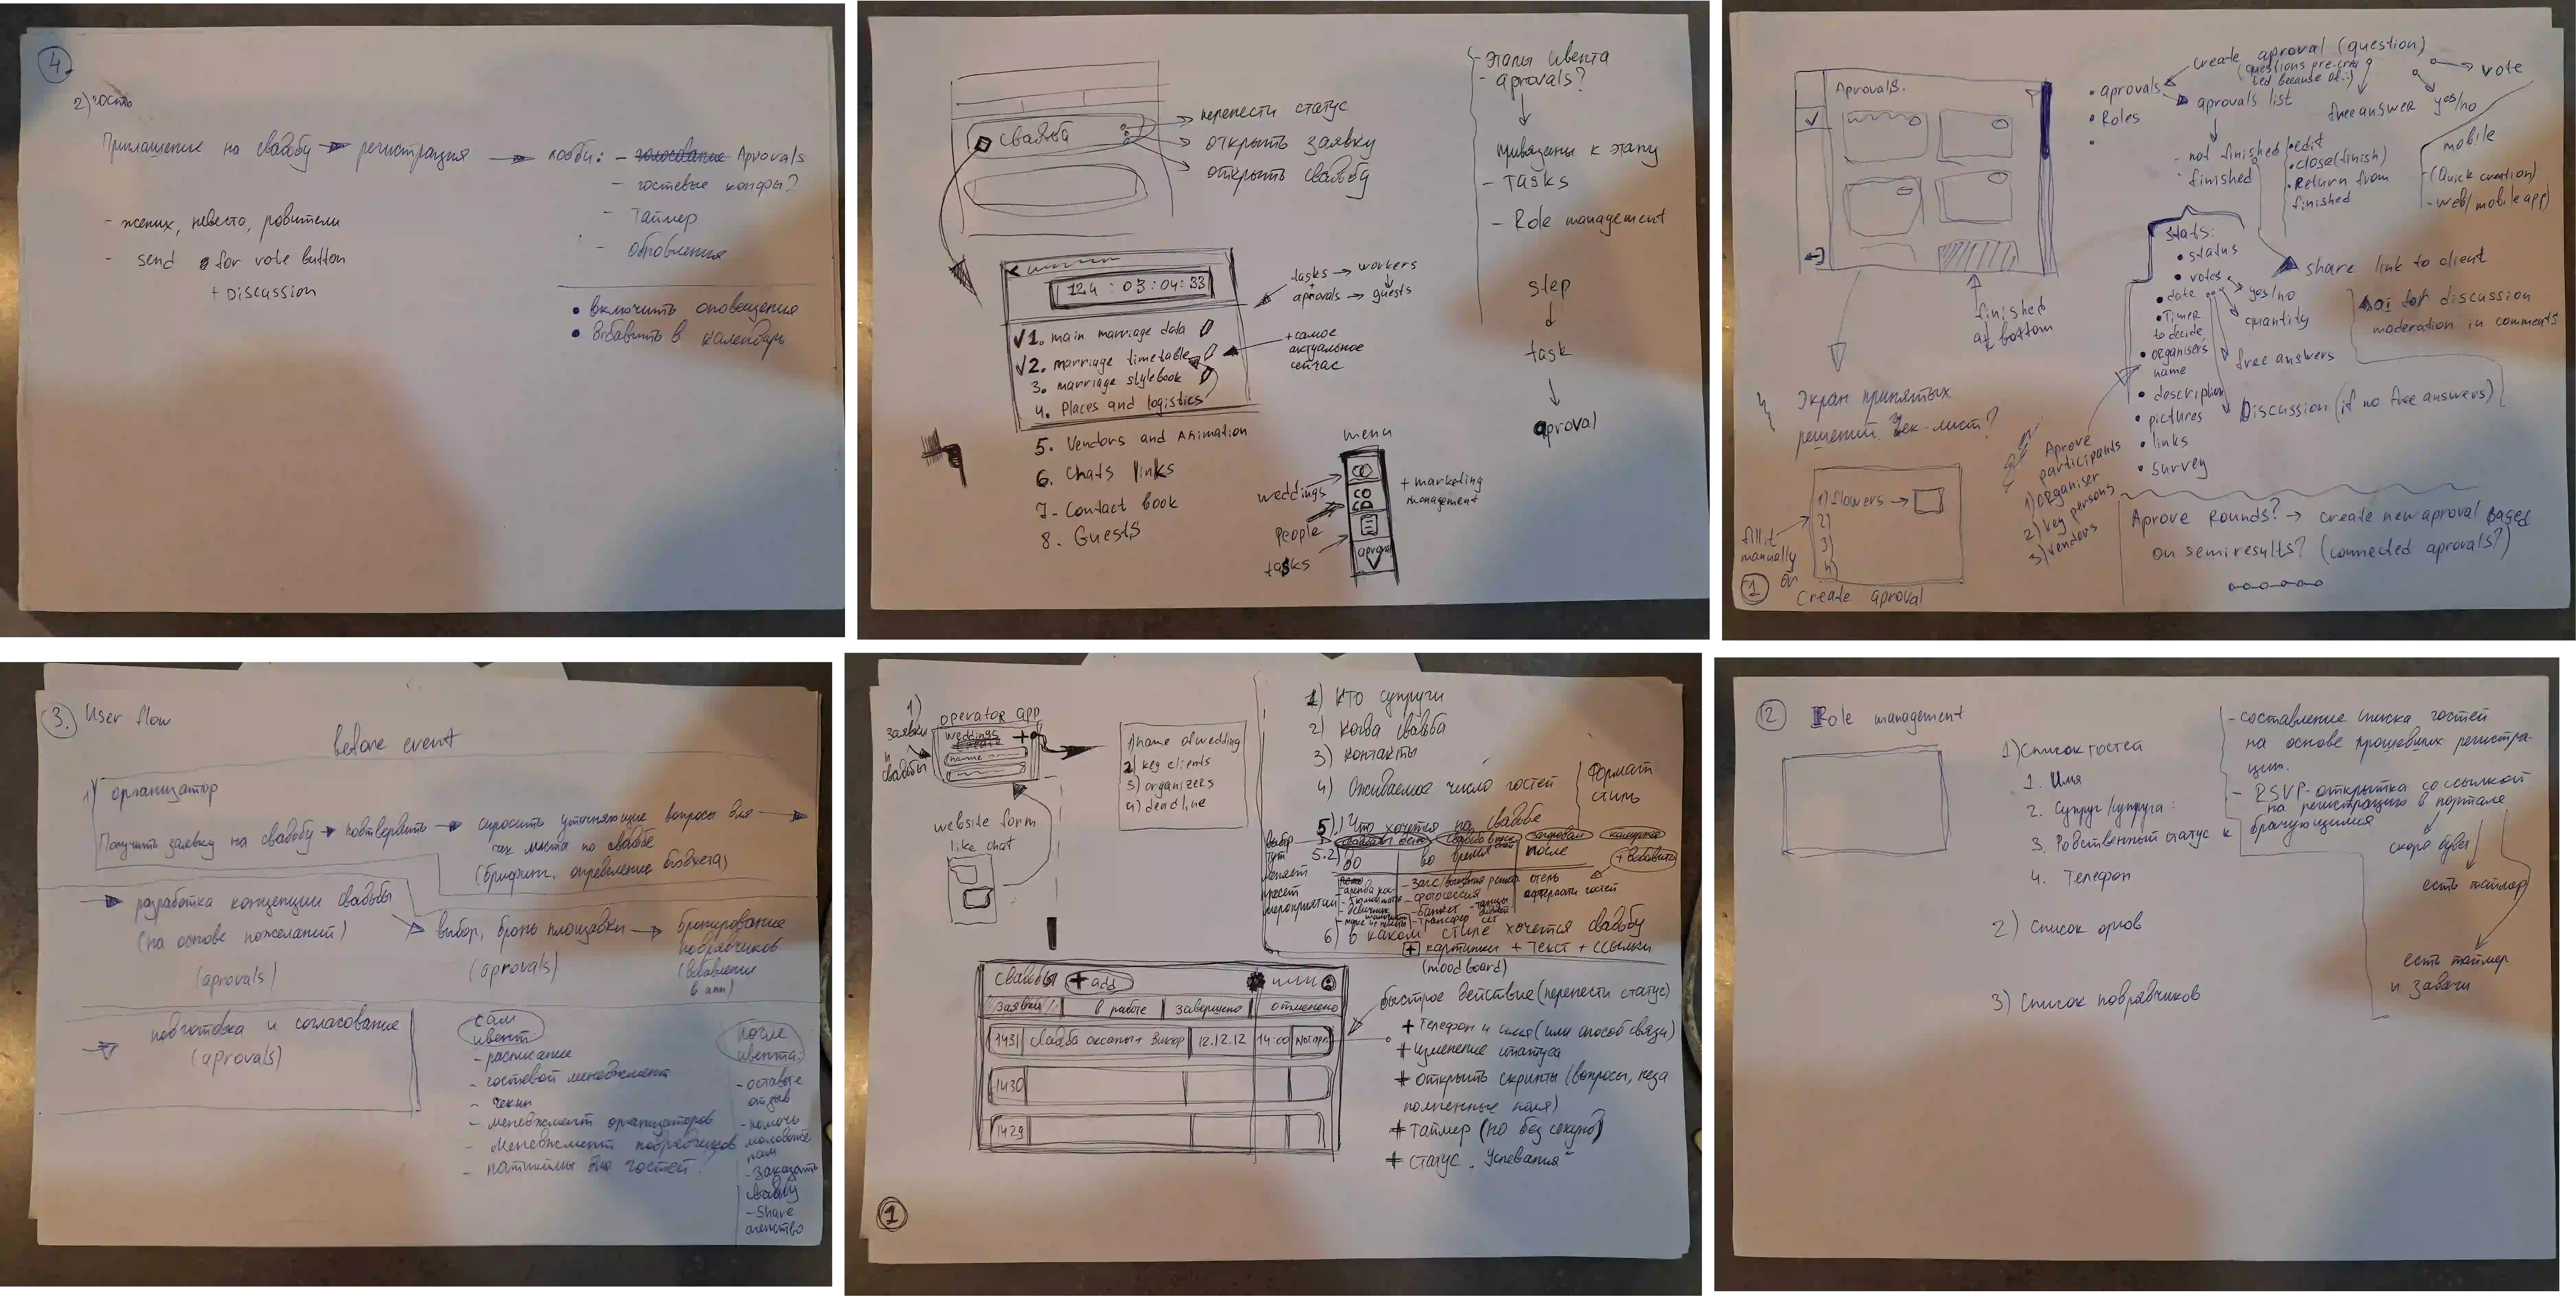 4
2) гость
Приглашение на свадьбу → регистрация → лобби: - голосование Aprovals
- гостевые конфы?
- Таймер
- обновления
- жених, невеста, родители
- send for vote button
+ Discussion
• включить оповещения
• добавить в календарь
свадьба
→ перенести статус
→ открыть заявку
→ открыть свадьбу
- этапы ивента
- aprovals?
↓
привязаны к этапу
- Tasks
- Role management
step
↓
task
↓
aproval
124 : 03 : 04 : 33
√ 1. main marriage data
√ 2. marriage timetable
3. marriage stylebook
4. Places and logistics
5. Vendors and Animation
6. Chats links
7. Contact book
8. Guests
tasks → workers
+
aprovals → guests
+ самое
актуальное
сейчас
menu
weddings
People
tasks
aproval
+ marketing
management
Aprovals.
• aprovals
• Roles
create aproval (question)
(questions pre-crea
ted because of..)
→ vote
yes/no
free answer
aprovals list
- not finished
- finished
• edit
• close (finish)
• Return from
finished
mobile
- (Quick creation)
- web/mobile app)
finished
at bottom
stats:
• status
• votes
• date
• Timer
to decide
• organiser's
name
• description
• pictures
• links
• survey
yes/no
quantity
free answers
Discussion (if no free answers)
share link to client
ai for discussion
moderation in comments
Экран принятых
решений. Чек-лист?
1) flowers →
2)
3)
4)
fill it
manually
or
Create aproval
Aprove
participants
1) organiser
2) key persons
3) vendors
Aprove Rounds? → create new aproval based
on semiresults? (connected aprovals?)
1
3. User flow
before event
1) организатор
Получить заявку на свадьбу → подтвердить → спросить уточняющие вопросы для →
чек листа по свадьбе
(брифинг, определение бюджета)
→ разработка концепции свадьбы
(на основе пожеланий)
(aprovals)
→ выбор, бронь площадки →
(aprovals)
бронирование
подрядчиков
(добавление
в апп)
→ подготовка и согласование
(aprovals)
сам
ивент
- расписание
- гостевой менеджмент
- чекин
- менеджмент организаторов
- менеджмент подрядчиков
- для гостей.
после
ивента:
- оставьте
отзыв
- помочь
молодожё
нам
- Заказать
свадьбу
- Share
агенство
1)
заявки
и
свадьбы
operator app
weddings +
create
name
1) name of wedding
2) key clients
3) organizers
4) deadline
website form
like chat
1) Кто супруги
2) Когда свадьба
3) контакты
4) Ожидаемое число гостей
Формат
стиль
5).1 Что хочется на свадьбе
выбор
тут
меняет
пресет
мероприятий
5.2) до
во время
после
+ добавить
- фотосессия
- банкет
- трансфер
отель
6) в каком стиле хочется свадьбу
+ картинки + текст + ссылки
(moodboard)
Свадьбы + add
Заявки | в работе | завершено | отменено
1431 | Свадьба оксаны + Виктор | 12.12.12 | 14:00 | Not apr.
1430
1429
быстрое действие (перенести статус)
+ Телефон и имя (или способ связи)
+ изменение статуса
+ открыть скрипты (вопросы, неза
полненные поля)
+ таймер (но без секунд)
+ статус „Успевания“
1
2 Role management
1) Список гостей
1. Имя
2. Супруг/супруга:
3. Родственный статус к брачующимся
4. Телефон
2) Список оргов
3) Список подрядчиков
- составление списка гостей
на основе прошедших регистра-
ции.
- RSVP-открытка со ссылкой
на регистрацию в портале
скоро будет
есть таймер
есть таймер
и задачи